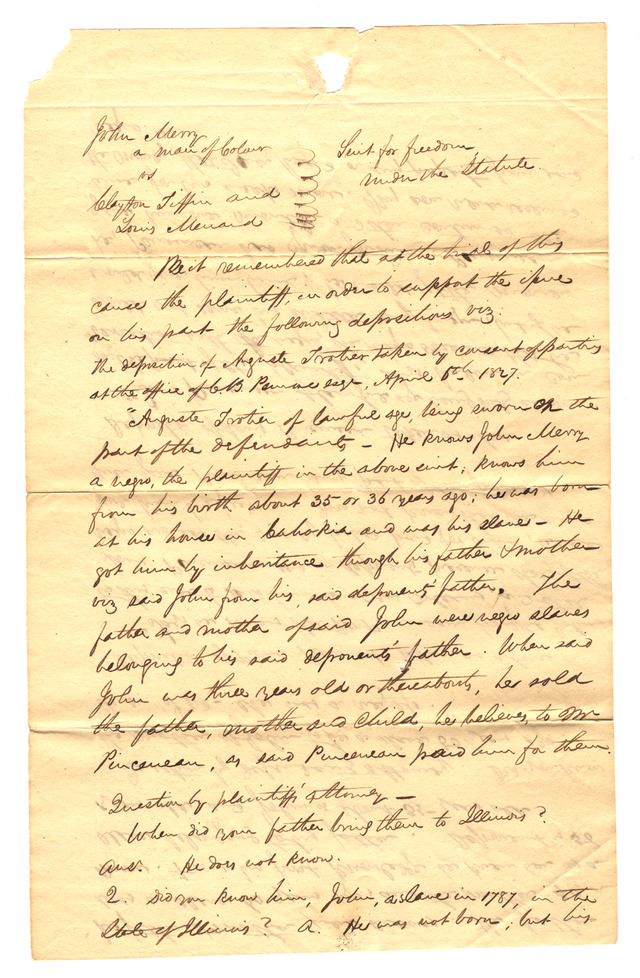 John Merry
a man of Colour
vs
Clayton Tiffin and
Louis Menard
Suit for freedom
under the Statute.
Be it remembered that at the trial of this
cause the plaintiff, in order to support the issue
on his part the following depositions viz.
The deposition of Auguste Trotier taken by consent of parties
at the office of C. B. Penrose esqr, April 6th 1827.
"Auguste Trotier of lawful age, being sworn on the
part of the defendants – He knows John Merry
a negro, the plaintiff in the above suit; knows him
from his birth about 35 or 36 years ago; he was born
at his house in Cahokia and was his slave – He
got him by inheritance through his father & mother
viz said John from his, said deponents' father. The
father and mother of said John were negro slaves
belonging to his said deponents' father. When said
John was three years old or thereabouts, he sold
the father, mother and child, he believes, to Mr
Pinceneau, as said Pinceneau paid him for them.
Question by plaintiff's attorney –
When did your father bring them to Illinois?
Ans. He does not know.
2. Did you know him, John, a slave in 1787, in the
State of Illinois? A. He was not born; but his